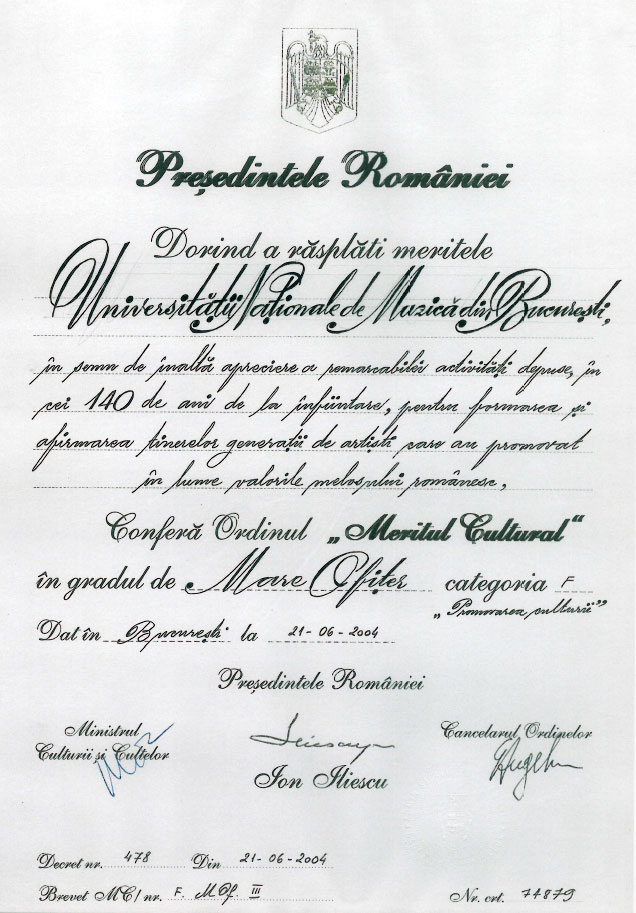 Președintele României
Dorind a răsplăti meritele
Universității Naționale de Muzică din București,
în semn de înaltă apreciere a remarcabilei activități depuse, în
cei 140 de ani de la înființare, pentru formarea și
afirmarea tinerelor generații de artiști care au promovat
în lume valorile melosului românesc,
Conferă Ordinul „Meritul Cultural"
în gradul de Mare Ofițer categoria F
„Promovarea culturii”
Dat în București la 21-06-2004
Președintele României
Ministrul
Culturii și Cultelor
Cancelarul Ordinelor
Ion Iliescu
Decret nr. 478 Din 21-06-2004
Brevet MC/nr. F. MOf III
Nr. crt. 74879